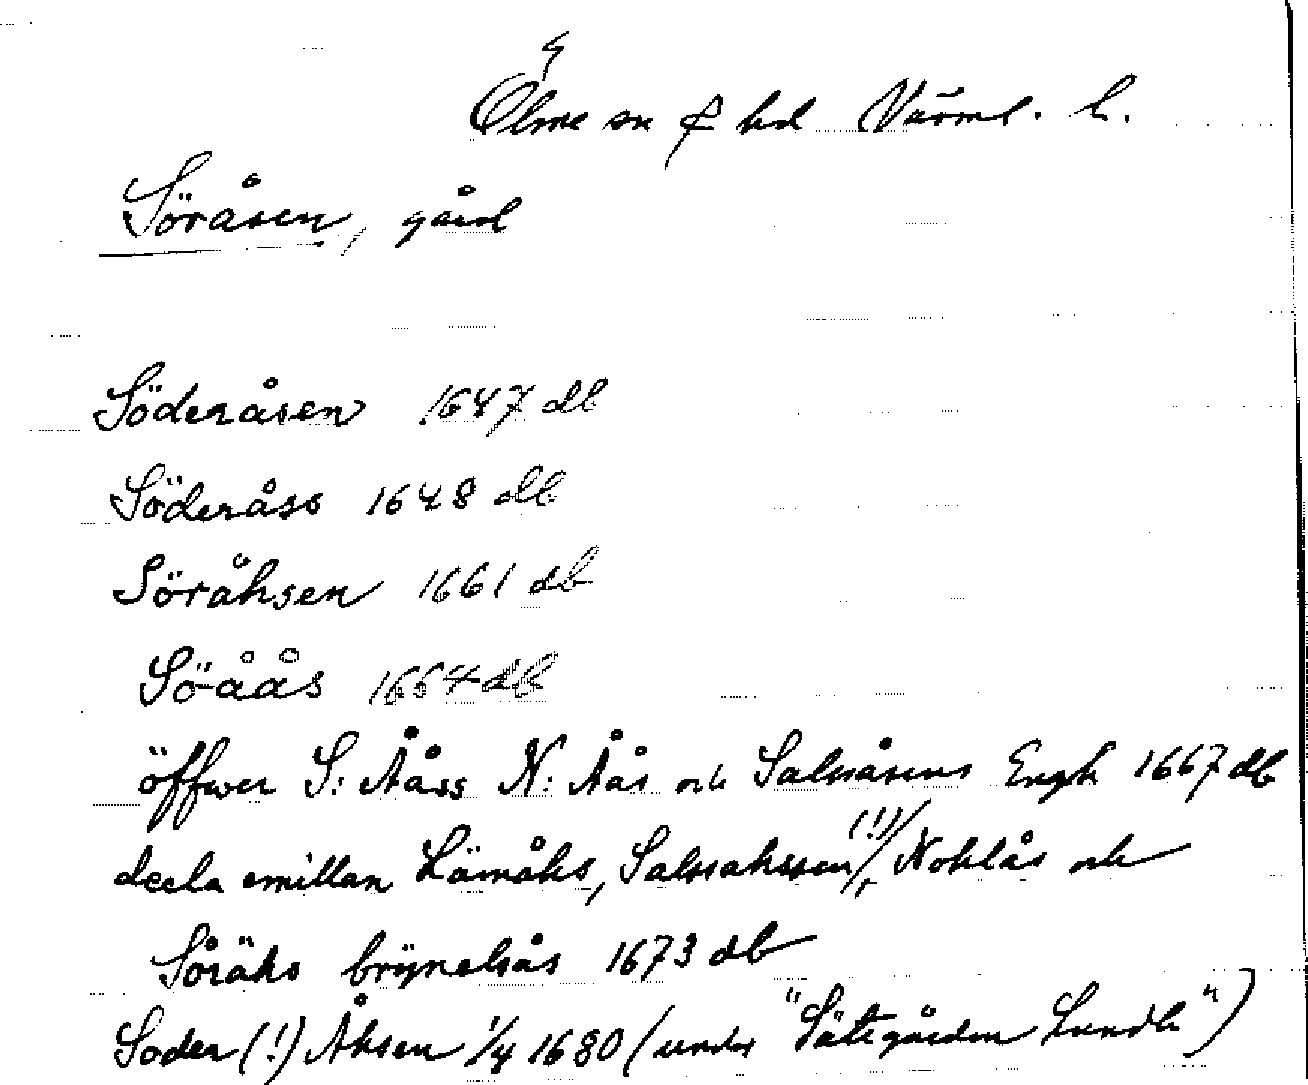 Ölme sn & hd Värml. l.
Söråsen, gård
Söderåsen 1647 db
Söderåss 1648 db
Söråhsen 1661 db
Söåås 1664 db
öffwer S: Ååss N: Åås och Salsåsens Engh 1667 db
deela emillan Lämåhs, Salsahssen (!), Nohlås och
Söråhs brÿnelsås 1673 db
Soder (!) Åhsen 1/4 1680 (under "Sätegården Lundh")